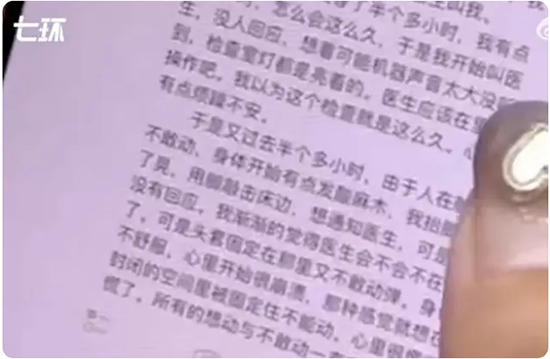 七环
了半个多小时，我有点
，怎么会这么久，于是我开始叫医
生，没人回应，想着可能机器声音太大没
到，检查室灯都是亮着的，医生应该在
操作吧，我以为这个检查就是这么久。心
有点烦躁不安。
于是又过去半个多小时，由于人在
不敢动，身体开始有点发酸麻木，我抬
了晃，用脚敲击床边，想通知医生，可是
没有回应，我渐渐的觉得医生会不会不在
了，可是头套固定在那里又不敢动弹，身
不舒服，心里开始很崩溃，那种感觉就想在
封闭的空间里被固定住不能动，心里很
慌了，所有的想动与不敢动一